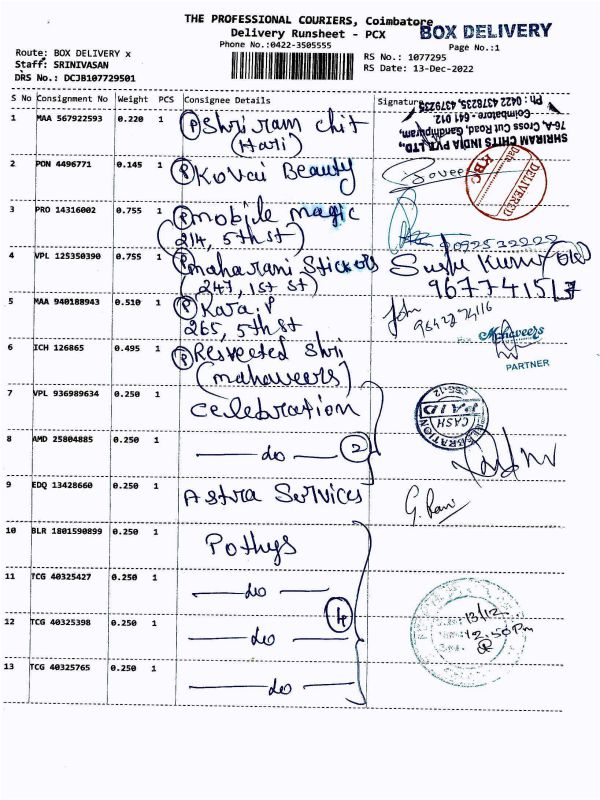 THE PROFESSIONAL COURIERS, Coimbatore
BOX DELIVERY
Delivery Runsheet - PCX
Phone No.:0422-3505555
Page No.:1
Route: BOX DELIVERY x
RS No.: 1077295
Staff: SRINIVASAN
RS Date: 13-Dec-2022
DRS No.: DCJB107729501
S No Consignment No Weight PCS Consignee Details Signature
SHRIRAM CHITS INDIA PVT.LTD.,
76-A, Cross Cut Road, Gandhipuram,
Coimbatore - 641 012
Ph : 0422 4378235, 4379235
1 MAA 567922593 0.220 1 P Shriram chit
(Hari)
2 PON 4496771 0.145 1 P Kovai Beauty
DELIVERED
KBC
3 PRO 14316002 0.755 1 P mobile magic
(214, 5th st)
4 VPL 125350390 0.755 1 P maharani stickers
(247, 1st st)
9677415
5 MAA 940188943 0.510 1 P Kara.P
265, 5th st
John
6 ICH 126865 0.495 1 P Respected Shri
(mahaveers)
Mahaveers
PARTNER
7 VPL 936989634 0.250 1 celebration
CELEBRATION
CASH
PAID
8 AMD 25804885 0.250 1 do 2
9 EDQ 13428660 0.250 1 Astra Services G. Ravi
10 BLR 1801590899 0.250 1 Pothys
11 TCG 40325427 0.250 1 do
4
12 TCG 40325398 0.250 1 do
13/12
12.50 Pm
13 TCG 40325765 0.250 1 do